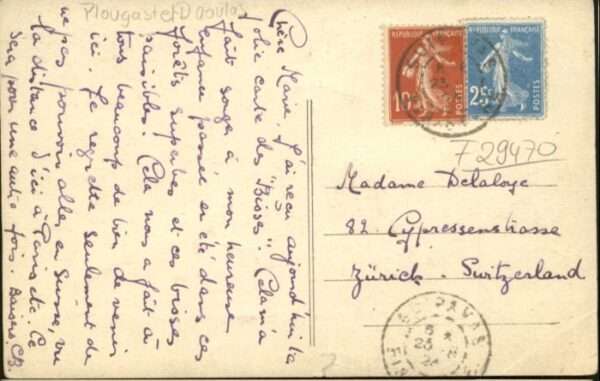 Plougastel Daoulas
Chère Marie, J'ai reçu aujourd'hui ta
jolie carte des "Bisses". Cela m'a
fait songer à mon heureuse
enfance passée en été dans ces
forêts superbes et ces bisses
sensibles! Cela nous a fait à
tous beaucoup de bien de venir
ici. Je regrette seulement de
ne pas pouvoir aller en Suisse, vu
la distance d'ici à Paris etc. Ce
sera pour une autre fois. Baisers. CB
REPUBLIQUE FRANÇAISE
10c
POSTES
REPUBLIQUE FRANÇAISE
25c
POSTES
F 29470
Madame Delaloye
82. Cypressenstrasse
Zürich. Switzerland
PAVAS
23